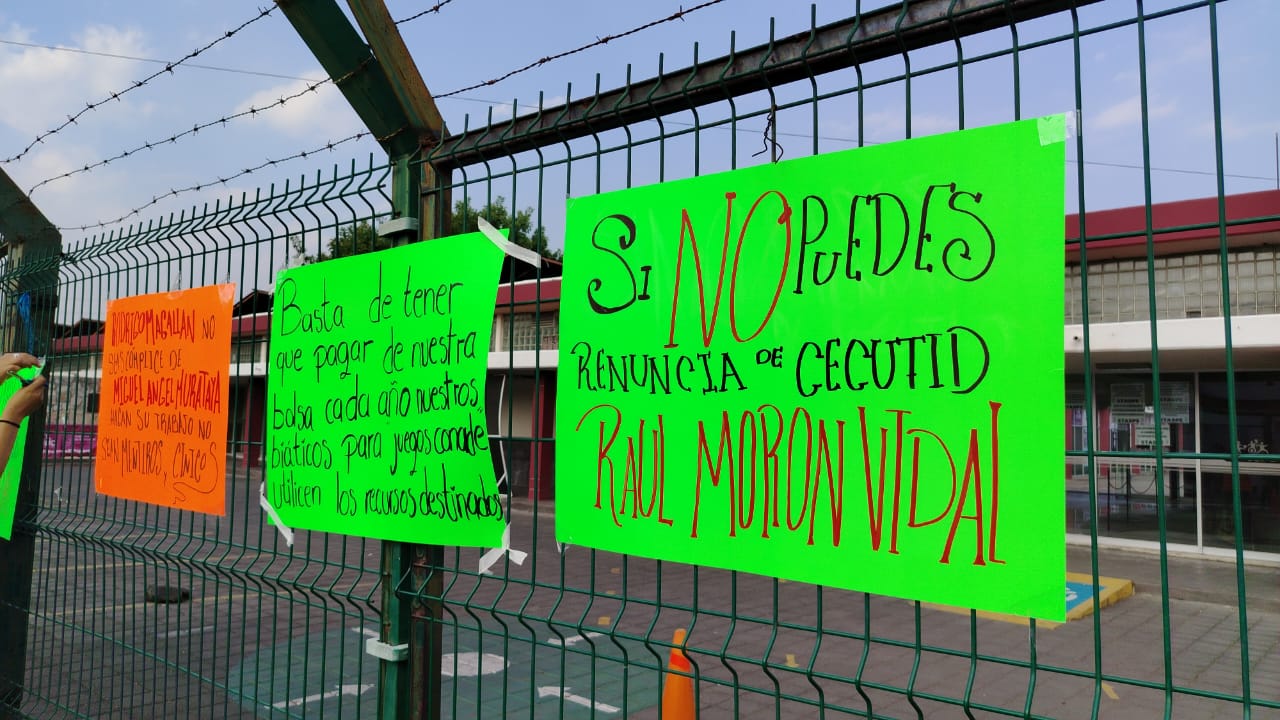 RODRIGO MAGALLAN NO
SEAS CÓMPLICE DE
MIGUEL ANGEL MURATAYA
HAGAN SU TRABAJO NO
SEAN MENTIROS, CINICOS
Basta de tener
que pagar de nuestra
bolsa cada año nuestros
biáticos para juegos conade
utilicen los recursos destinados
SI NO PUEDES
RENUNCIA DE CECUTID
RAUL MORON VIDAL